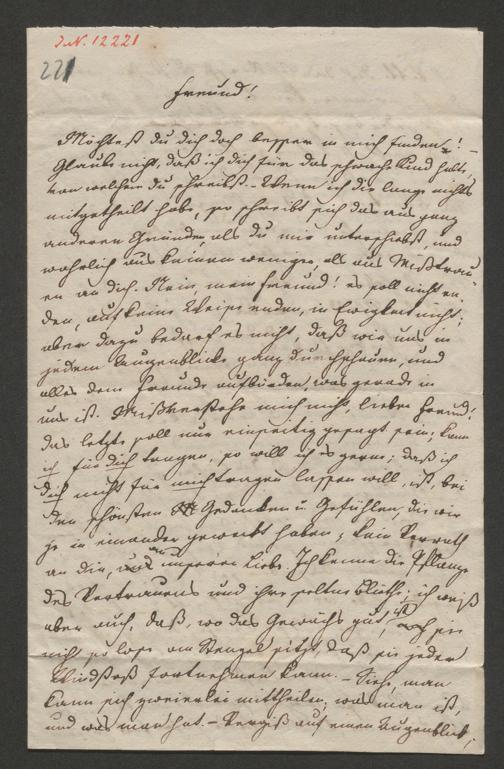 J.N. 12221
221
Freund!
Möchtest du dich doch besser in mich finden! –
Glaube nicht, daß ich dich für das schwache Kind halte,
von welchem du schreibst. – Wenn ich dir lange nichts
mitgetheilt habe, so schreibt sich das aus ganz
anderen Gründen, als du mir unterschiebst, und
wahrlich aus keinem weniger, als aus Mißtrau-
en an dich. Nein, mein Freund! es soll nicht en-
den, auf keine Weise enden, in Ewigkeit nicht;
aber dazu bedarf es nicht, daß wir uns in
jedem Augenblicke ganz durchschauen, und
alles dem Freunde aufbürden, was gerade in
uns ist. Mißverstehe mich nicht, lieber Freund!
das letzte soll nur einseitig gesagt sein; kann
ich für dich tragen, so will ich es gerne; daß ich
dich nicht für mich tragen lassen will, ist, bei
den schönsten Gedanken u. Gefühlen, die wir
je in einander geweckt haben, kein Verrath
an dir, und an unserer Liebe. Ich kenne die Pflanze
des Vertrauens und ihre seltne Blüthe; ich weiß
aber auch, daß, wo das Gewächs gut ist, sie
nicht so lose am Stengel sitzt, daß sie jeder
Windstoß fortnehmen kann. – Sieh, man
kann sich zweierlei mittheilen; was man ist,
und was man hat. – Vergiß auf einen Augenblick,